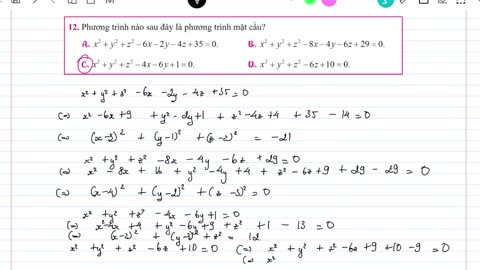 12. Phương trình nào sau đây là phương trình mặt cầu?
A. x² + y² + z² − 6x − 2y − 4z + 35 = 0. B. x² + y² + z² − 8x − 4y − 6z + 29 = 0.
C. x² + y² + z² − 4x − 6y + 1 = 0. D. x² + y² + z² − 6z + 10 = 0.
x² + y² + z² − 6x − 2y − 4z + 35 = 0
(=) x² − 6x + 9 + y² − 2y + 1 + z² − 4z + 4 + 35 − 14 = 0
(=) (x−3)² + (y−1)² + (z−2)² = −21
x² + y² + z² − 8x − 4y − 6z + 29 = 0
(=) x² − 8x + 16 + y² − 4y + 4 + z² − 6z + 9 + 29 − 29 = 0
(=) (x−4)² + (y−2)² + (z−3)² = 0
x² + y² + z² − 4x − 6y + 1 = 0
(=) x² − 4x + 4 + y² − 6y + 9 + z² + 1 − 13 = 0
(=) (x−2)² + (y−3)² + z² = 12
x² + y² + z² − 6z + 10 = 0 (=) x² + y² + z² − 6z + 9 + 10 − 9 = 0
(=) x²